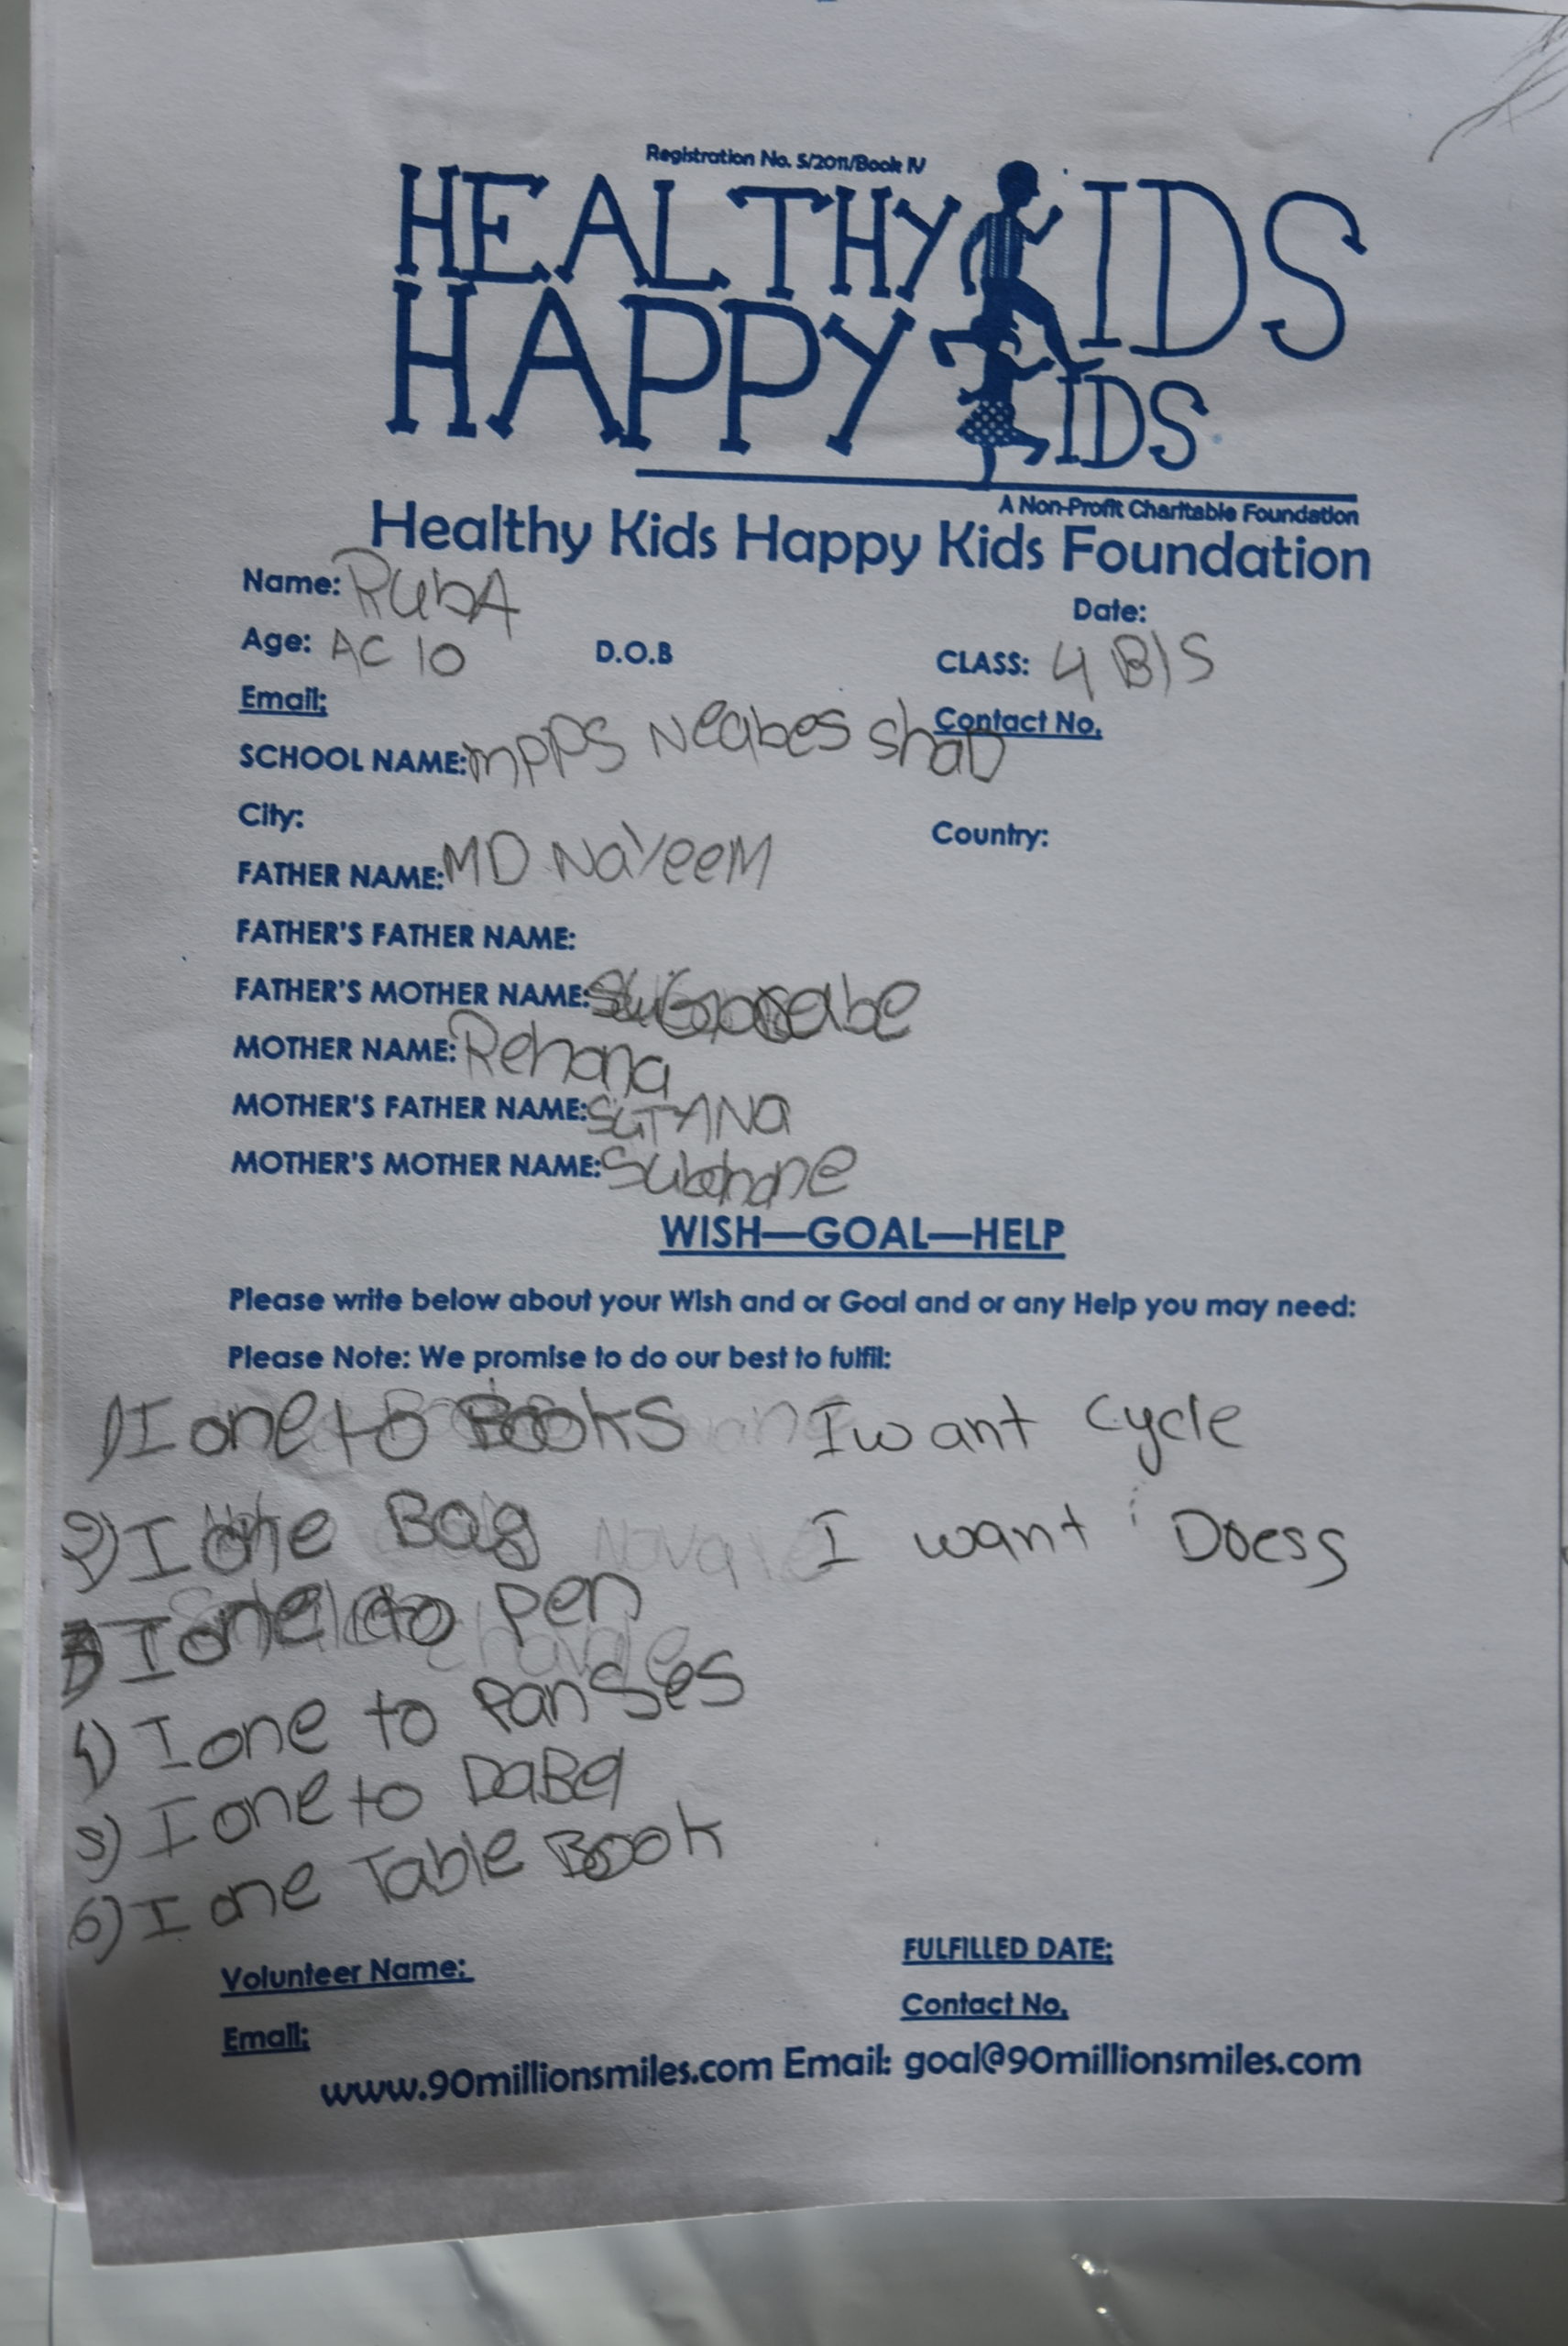 Registration No. 5/2011/Book IV
HEALTHY KIDS
HAPPY KIDS
A Non-Profit Charitable Foundation
Healthy Kids Happy Kids Foundation
Name: RubA
Date:
Age: AC 10 D.O.B CLASS: 4 B/S
Email: Contact No.
SCHOOL NAME: mpps Neabes shaD
City: Country:
FATHER NAME: MD NaYeeM
FATHER'S FATHER NAME:
FATHER'S MOTHER NAME:
MOTHER NAME: Rehana
MOTHER'S FATHER NAME: SUTANa
MOTHER'S MOTHER NAME:
WISH—GOAL—HELP
Please write below about your Wish and or Goal and or any Help you may need:
Please Note: We promise to do our best to fulfil:
1) I one to Books I want cycle
2) I one Bag I want Doess
3) I one to pen
4) I one to PanSes
5) I one to DaBa
6) I one Table Book
Volunteer Name: FULFILLED DATE:
Contact No.
Email:
www.90millionsmiles.com Email: goal@90millionsmiles.com